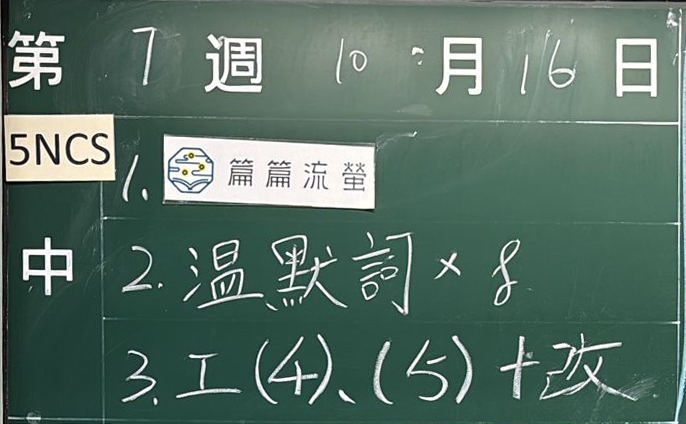 第 7 週 10 月 16 日
5NCS
1. 篇篇流螢
中
2. 温默詞 × 8
3. 工(4)、(5)+改